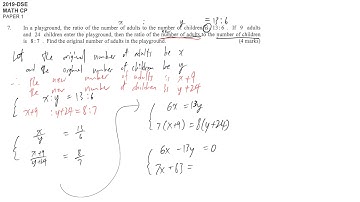 2019-DSE
MATH CP
PAPER 1
x : y = 13:6
7. In a playground, the ratio of the number of adults to the number of children is 13 : 6. If 9 adults
and 24 children enter the playground, then the ratio of the number of adults to the number of children
is 8 : 7. Find the original number of adults in the playground. (4 marks)
Let the original number of adults be x
and the original number of children be y
∴ The new number of adults is x+9
the new number of children is y+24
{ x : y = 13 : 6
x+9 : y+24 = 8 : 7
{ x/y = 13/6
x+9/y+24 = 8/7
{ 6x = 13y
7(x+9) = 8(y+24)
{ 6x - 13y = 0
7x + 63 =